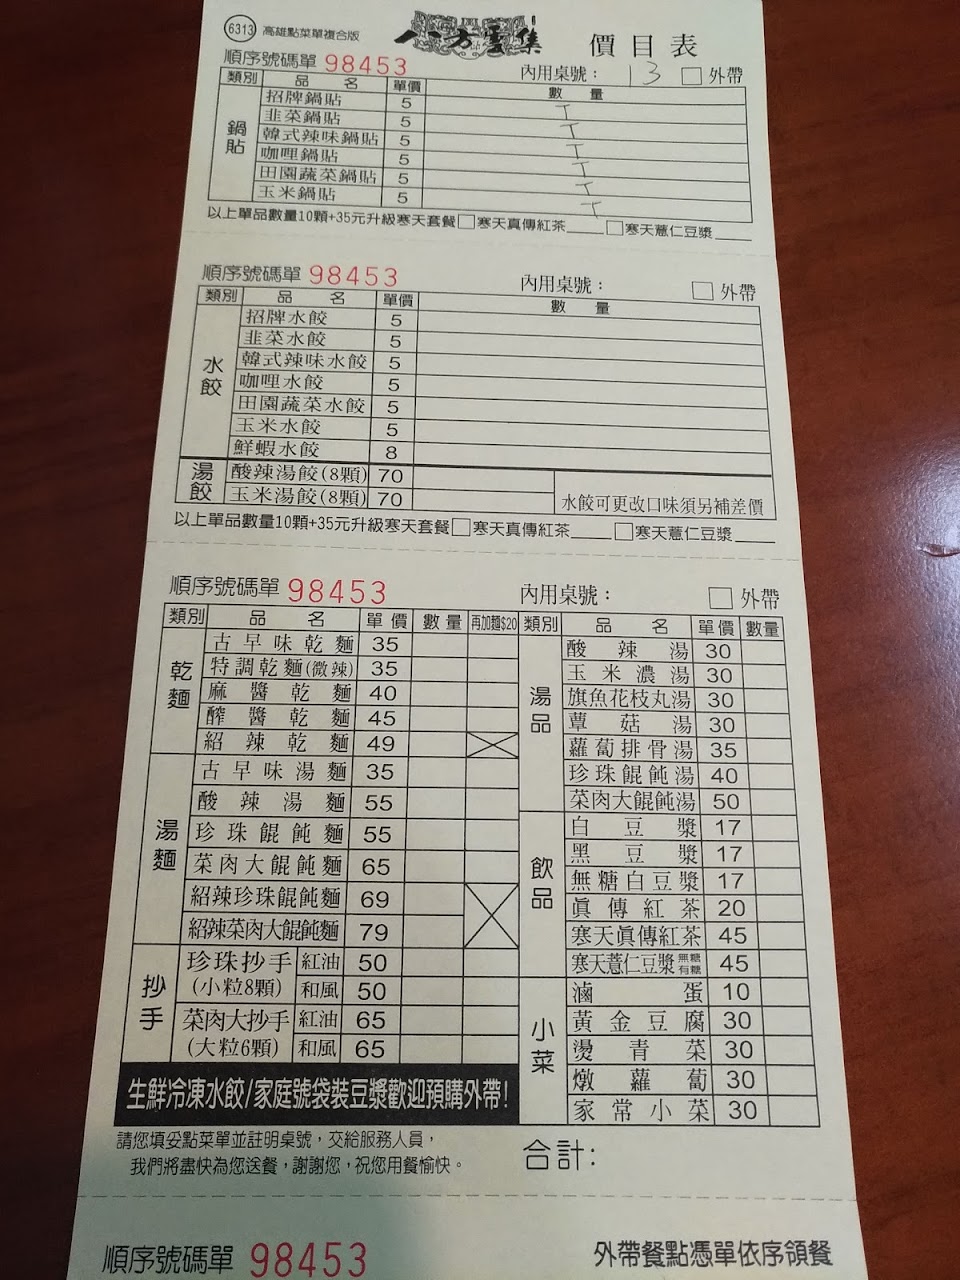 6313 高雄點菜單複合版 八方雲集 價目表
順序號碼單 98453 內用桌號： 13 □外帶
類別 品名 單價 數量
鍋貼
招牌鍋貼 5 T
韭菜鍋貼 5 T
韓式辣味鍋貼 5 T
咖哩鍋貼 5 T
田園蔬菜鍋貼 5 T
玉米鍋貼 5 T
以上單品數量10顆+35元升級寒天套餐□寒天真傳紅茶____ □寒天薏仁豆漿____
順序號碼單 98453 內用桌號： □外帶
類別 品名 單價 數量
水餃
招牌水餃 5
韭菜水餃 5
韓式辣味水餃 5
咖哩水餃 5
田園蔬菜水餃 5
玉米水餃 5
鮮蝦水餃 8
湯餃
酸辣湯餃(8顆) 70
玉米湯餃(8顆) 70
水餃可更改口味須另補差價
以上單品數量10顆+35元升級寒天套餐□寒天真傳紅茶____ □寒天薏仁豆漿____
順序號碼單 98453 內用桌號： □外帶
類別 品名 單價 數量 再加麵$20
乾麵
古早味乾麵 35
特調乾麵(微辣) 35
麻醬乾麵 40
醡醬乾麵 45
紹辣乾麵 49
湯麵
古早味湯麵 35
酸辣湯麵 55
珍珠餛飩麵 55
菜肉大餛飩麵 65
紹辣珍珠餛飩麵 69
紹辣菜肉大餛飩麵 79
抄手
珍珠抄手 紅油 50
(小粒8顆) 和風 50
菜肉大抄手 紅油 65
(大粒6顆) 和風 65
生鮮冷凍水餃/家庭號袋裝豆漿歡迎預購外帶!
請您填妥點菜單並註明桌號，交給服務人員，
我們將盡快為您送餐，謝謝您，祝您用餐愉快。
類別 品名 單價 數量
湯品
酸辣湯 30
玉米濃湯 30
旗魚花枝丸湯 30
蕈菇湯 30
蘿蔔排骨湯 35
珍珠餛飩湯 40
菜肉大餛飩湯 50
飲品
白豆漿 17
黑豆漿 17
無糖白豆漿 17
真傳紅茶 20
寒天真傳紅茶 45
寒天薏仁豆漿 無糖 有糖 45
小菜
滷蛋 10
黃金豆腐 30
燙青菜 30
燉蘿蔔 30
家常小菜 30
合計：
順序號碼單 98453 外帶餐點憑單依序領餐